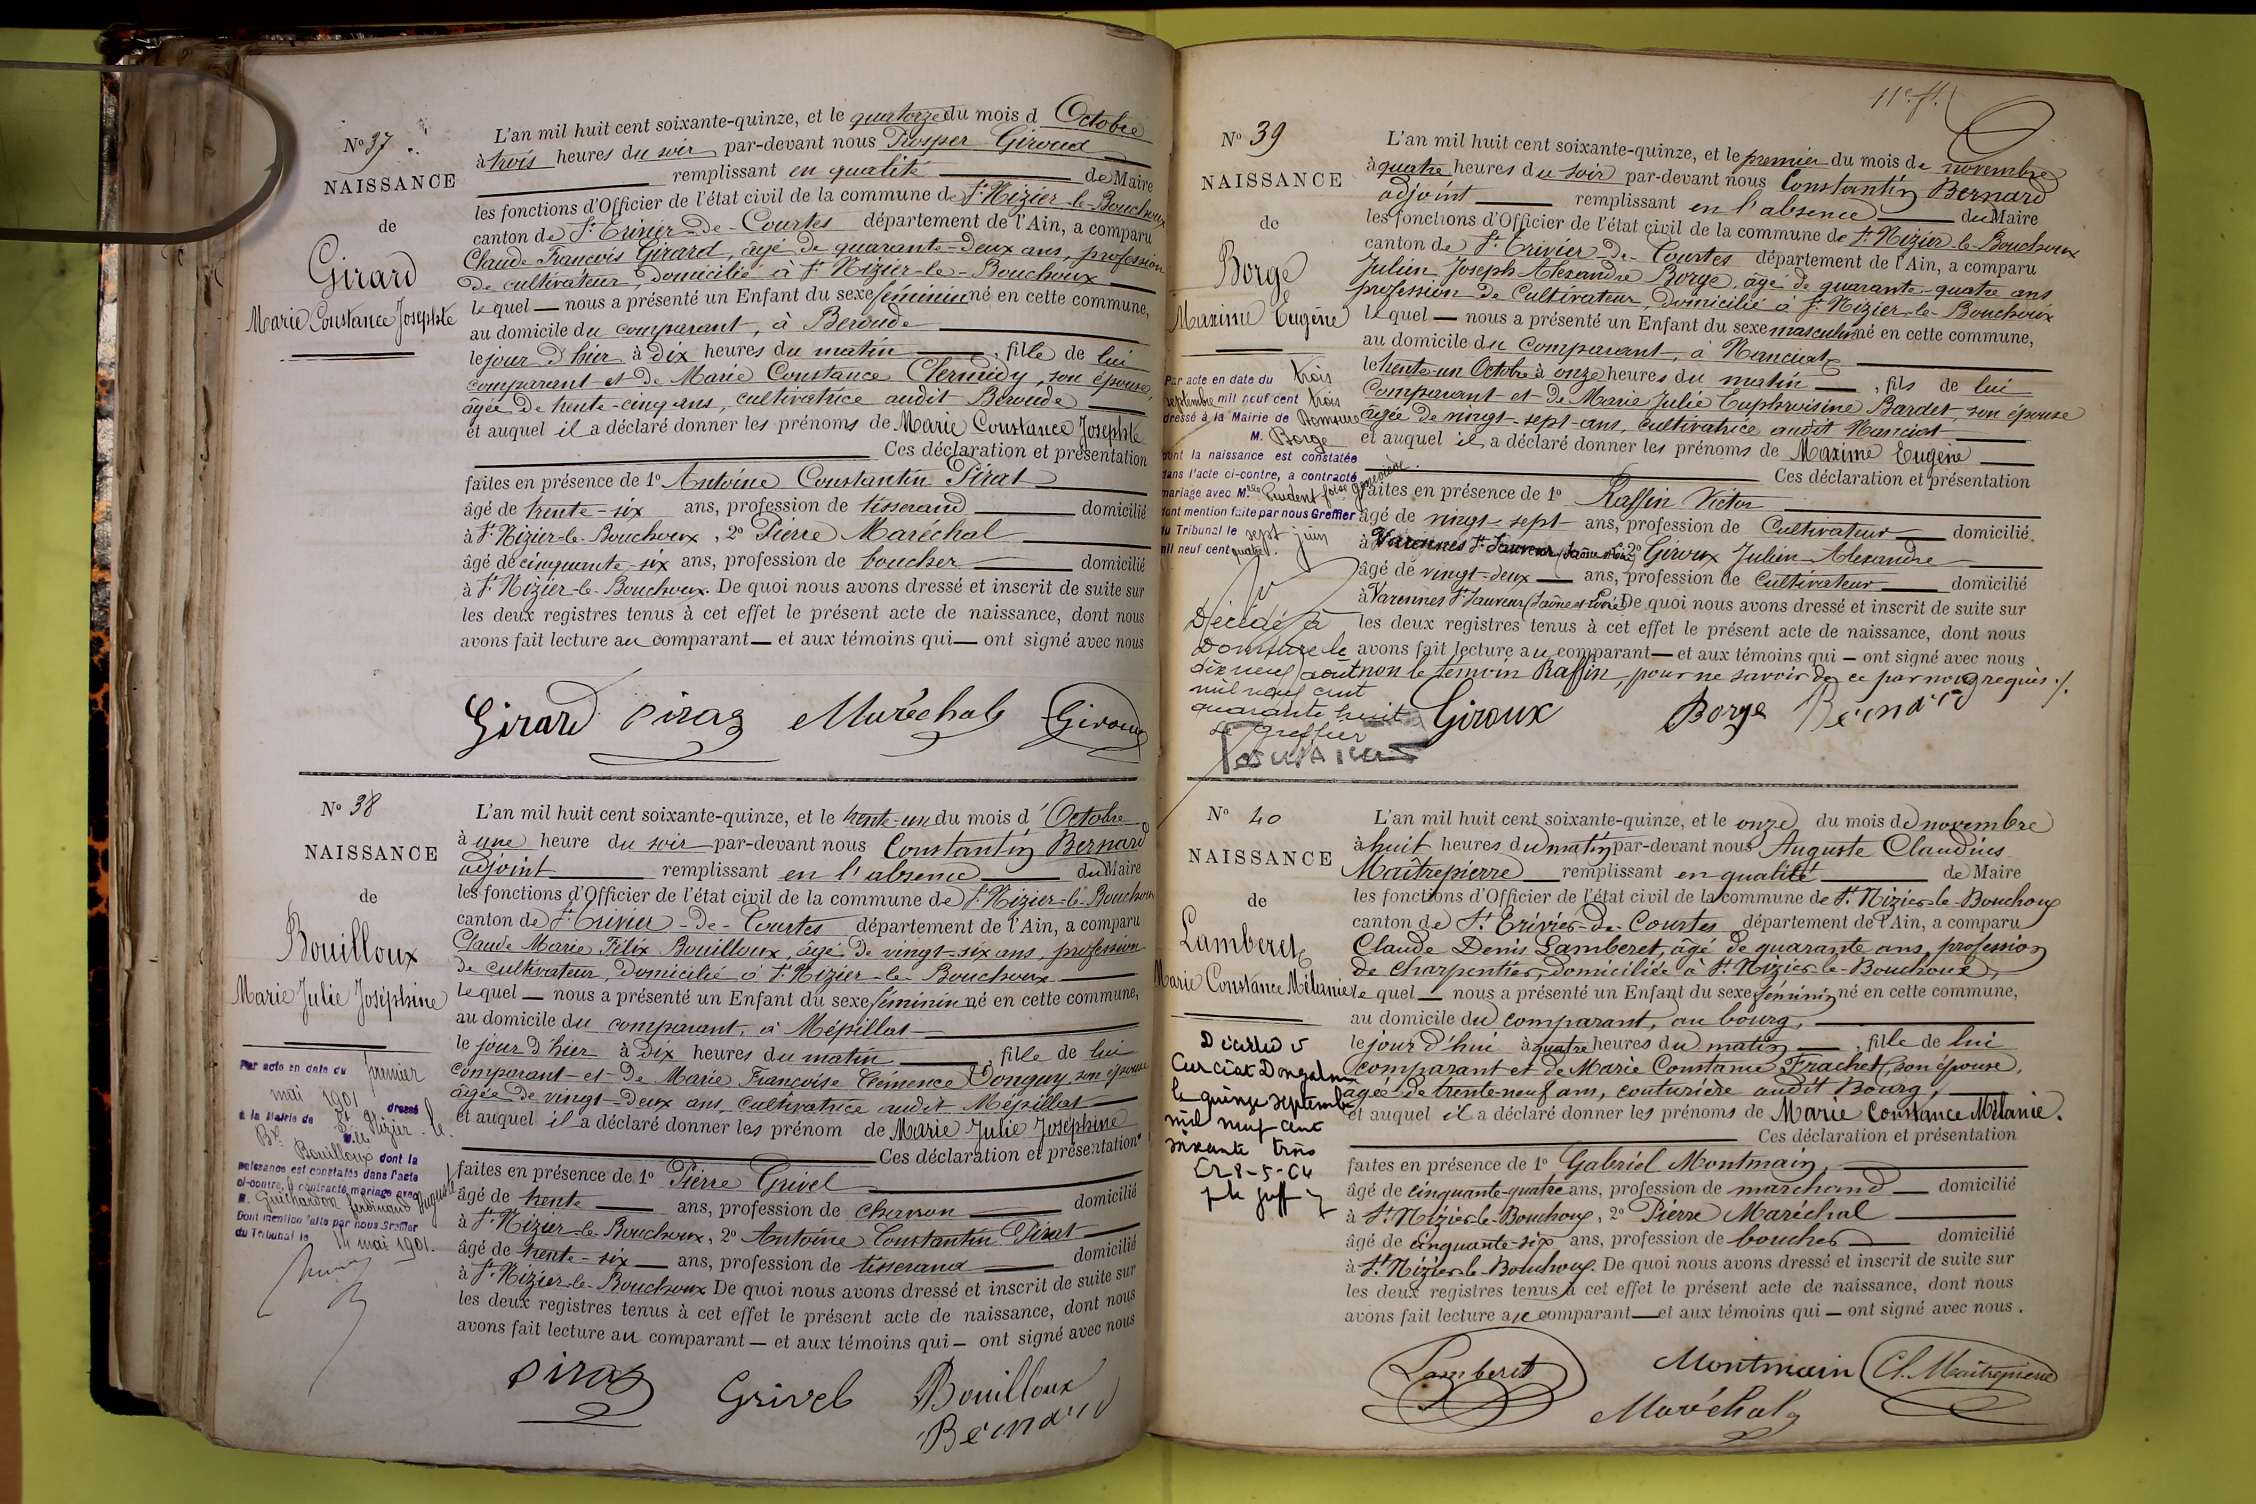 N° 37
NAISSANCE
de
Girard
Marie Constance Josephte
L'an mil huit cent soixante-quinze, et le quatorze du mois d Octobre
à trois heures du soir par-devant nous Prosper Giroud
remplissant en qualité de Maire
les fonctions d'Officier de l'état civil de la commune de St Nizier-le-Bouchoux
canton de St Trivier-de-Courtes département de l'Ain, a comparu
Claude François Girard, âgé de quarante-deux ans, profession
de cultivateur, domicilié à St Nizier-le-Bouchoux
lequel — nous a présenté un Enfant du sexe féminin né en cette commune,
au domicile du comparant, à Beroude
le jour d'hier à dix heures du matin, fille de lui
comparant et de Marie Constance Clermidy, son épouse,
âgée de trente-cinq ans, cultivatrice audit Beroude
et auquel il a déclaré donner les prénoms de Marie Constance Josephte
Ces déclaration et présentation
faites en présence de 1° Antoine Constantin Pirat
âgé de trente-six ans, profession de tisserand domicilié
à St Nizier-le-Bouchoux, 2° Pierre Maréchal
âgé de cinquante-six ans, profession de boucher domicilié
à St Nizier-le-Bouchoux. De quoi nous avons dressé et inscrit de suite sur
les deux registres tenus à cet effet le présent acte de naissance, dont nous
avons fait lecture au comparant — et aux témoins qui — ont signé avec nous
Girard Piraz Maréchal Giroud
N° 38
NAISSANCE
de
Bouilloux
Marie Julie Joséphine
Par acte en date du premier
mai 1901 dressé
à la Mairie de St Nizier-le-
Bx Mlle
Bouilloux dont la
naissance est constatée dans l'acte
ci-contre, a contracté mariage avec
M. Guichardon ferdinand Auguste
Dont mention faite par nous Greffier
du Tribunal le 14 mai 1901.
L'an mil huit cent soixante-quinze, et le trente-un du mois d'Octobre
à une heure du soir par-devant nous Constantin Bernard
adjoint remplissant en l'absence du Maire
les fonctions d'Officier de l'état civil de la commune de St Nizier-le-Bouchoux
canton de St Trivier-de-Courtes département de l'Ain, a comparu
Claude Marie Félix Bouilloux, âgé de vingt-six ans, profession
de cultivateur, domicilié à St Nizier-le-Bouchoux
lequel — nous a présenté un Enfant du sexe féminin né en cette commune,
au domicile du comparant, à Mépillat
le jour d'hier à dix heures du matin, fille de lui
comparant et de Marie Françoise Clémence Donguy, son épouse
âgée de vingt-deux ans, cultivatrice audit Mépillat
et auquel il a déclaré donner les prénom de Marie Julie Joséphine
Ces déclaration et présentation
faites en présence de 1° Pierre Grivel
âgé de trente ans, profession de charron domicilié
à St Nizier-le-Bouchoux, 2° Antoine Constantin Pirat
âgé de trente-six ans, profession de tisserand domicilié
à St Nizier-le-Bouchoux De quoi nous avons dressé et inscrit de suite sur
les deux registres tenus à cet effet le présent acte de naissance, dont nous
avons fait lecture au comparant — et aux témoins qui — ont signé avec nous
Piraz Grivel Bouilloux
Bernard
11e ft.
N° 39
NAISSANCE
de
Borge
Maxime Eugène
Par acte en date du trois
septembre mil neuf cent trois
dressé à la Mairie de Domsure
M. Borge
dont la naissance est constatée
dans l'acte ci-contre, a contracté
mariage avec Mlle Prudent foise Geneviève.
dont mention faite par nous Greffier
du Tribunal le sept juin
mil neuf cent quatre.
Décédé à
Domsure le
dix neuf août
mil neuf cent
quarante huit
Le Greffier
L'an mil huit cent soixante-quinze, et le premier du mois de novembre
à quatre heures du soir par-devant nous Constantin Bernard
adjoint remplissant en l'absence du Maire
les fonctions d'Officier de l'état civil de la commune de St Nizier-le-Bouchoux
canton de St Trivier-de-Courtes département de l'Ain, a comparu
Julien Joseph Alexandre Borge, âgé de quarante-quatre ans
profession de Cultivateur, domicilié à St Nizier-le-Bouchoux
lequel — nous a présenté un Enfant du sexe masculin né en cette commune,
au domicile du comparant, à Nanciat
le trente-un Octobre à onze heures du matin, fils de lui
comparant et de Marie Julie Euphroisine Bardet, son épouse
âgée de vingt-sept-ans, cultivatrice audit Nanciat
et auquel il a déclaré donner les prénoms de Maxime Eugène
Ces déclaration et présentation
faites en présence de 1° Raffin Victor
âgé de vingt-sept ans, profession de Cultivateur domicilié
à Varennes St Sauveur (Saône et Loire) 2° Giroux Julien Alexandre
âgé de vingt-deux ans, profession de Cultivateur domicilié
à Varennes St Sauveur (Saône et Loire) De quoi nous avons dressé et inscrit de suite sur
les deux registres tenus à cet effet le présent acte de naissance, dont nous
avons fait lecture au comparant — et aux témoins qui — ont signé avec nous
non le témoin Raffin, pour ne savoir de ce par nous requis ./.
Giroux Borge Bernard
N° 40
NAISSANCE
de
Lamberet
Marie Constance Mélanie
Décédée
Curciat Dongalon
le quinze septembre
mil neuf cent
soixante trois
Cr 8-5-64
p le greff
L'an mil huit cent soixante-quinze, et le onze du mois de novembre
à huit heures du matin par-devant nous Auguste Claudius
Maîtrepierre remplissant en qualité de Maire
les fonctions d'Officier de l'état civil de la commune de St. Nizier-le-Bouchoux
canton de St. Trivier-de-Courtes département de l'Ain, a comparu
Claude Denis Lamberet, âgé de quarante ans, profession
de charpentier, domiciliée à St. Nizier-le-Bouchoux,
lequel — nous a présenté un Enfant du sexe féminin né en cette commune,
au domicile du comparant, au bourg,
le jour d'hui à quatre heures du matin, fille de lui
comparant et de Marie Constance Frachet, son épouse,
agée de trente-neuf ans, couturière audit Bourg,
et auquel il a déclaré donner les prénoms de Marie Constance Mélanie.
Ces déclaration et présentation
faites en présence de 1° Gabriel Montmain,
âgé de cinquante-quatre ans, profession de marchand domicilié
à St. Nizier-le-Bouchoux, 2° Pierre Maréchal
âgé de cinquante-six ans, profession de boucher domicilié
à St. Nizier-le-Bouchoux. De quoi nous avons dressé et inscrit de suite sur
les deux registres tenus à cet effet le présent acte de naissance, dont nous
avons fait lecture au comparant — et aux témoins qui — ont signé avec nous.
Lamberet Montmain Cl. Maîtrepierre
Maréchal